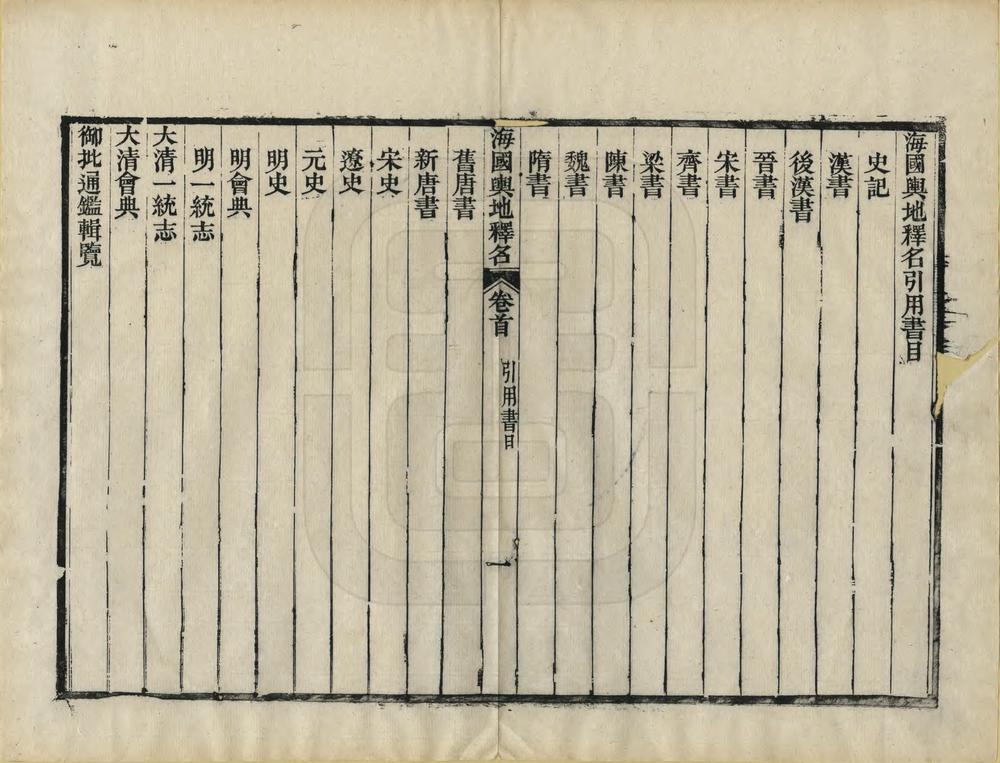 海國輿地釋名引用書目
史記
漢書
後漢書
晉書
宋書
齊書
梁書
陳書
魏書
隋書
海國輿地釋名 卷首 引用書目 一
舊唐書
新唐書
宋史
遼史
元史
明史
明會典
明一統志
大清一統志
大清會典
御批通鑑輯覽